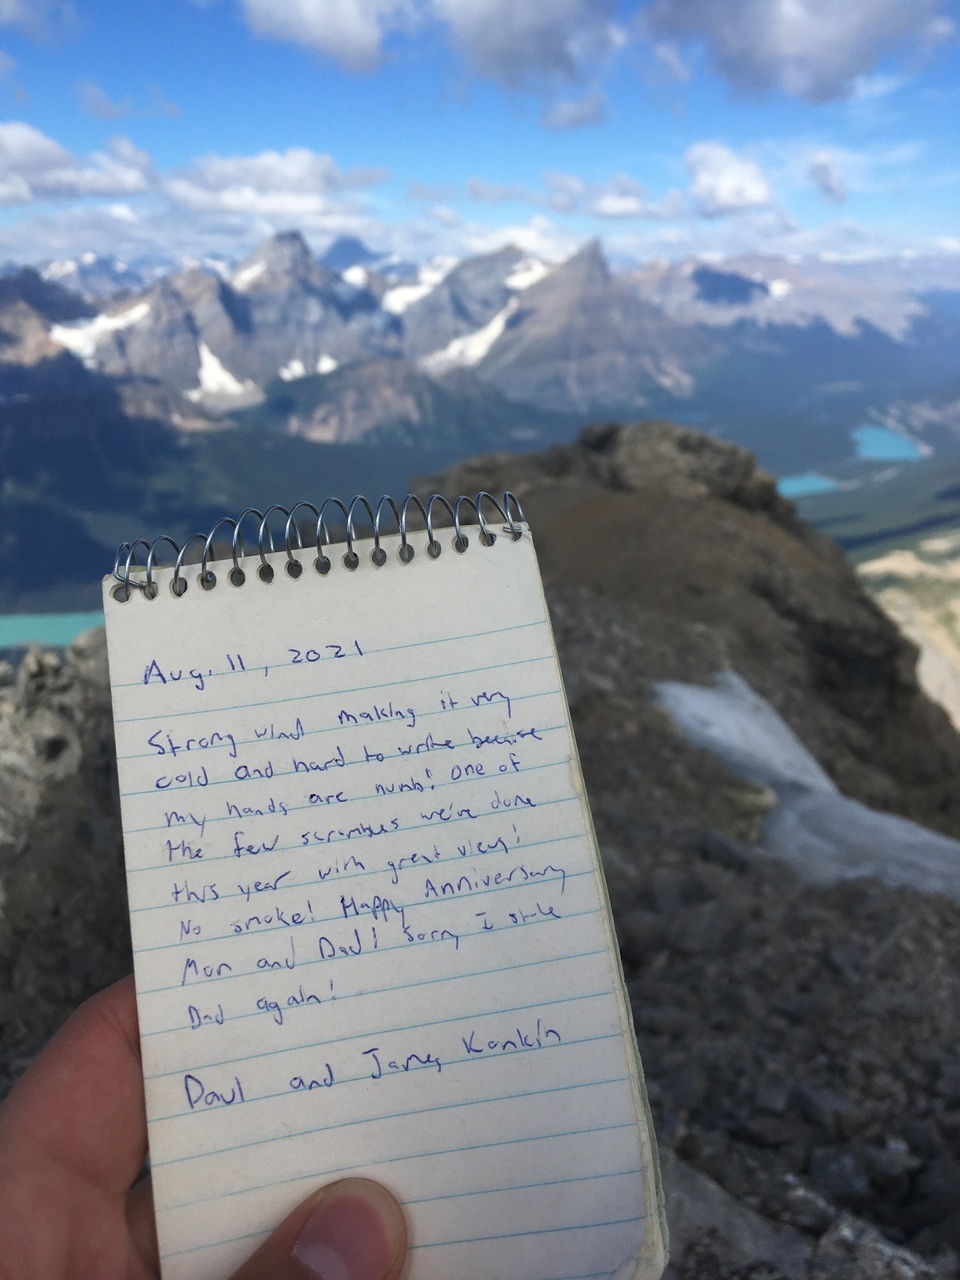 Aug. 11, 2021
Strong wind making it very
cold and hard to write because
my hands are numb! One of
the few scrambles we've done
this year with great views!
No smoke! Happy Anniversary
Mom and Dad! Sorry I stole
Dad again!
and James Konkin